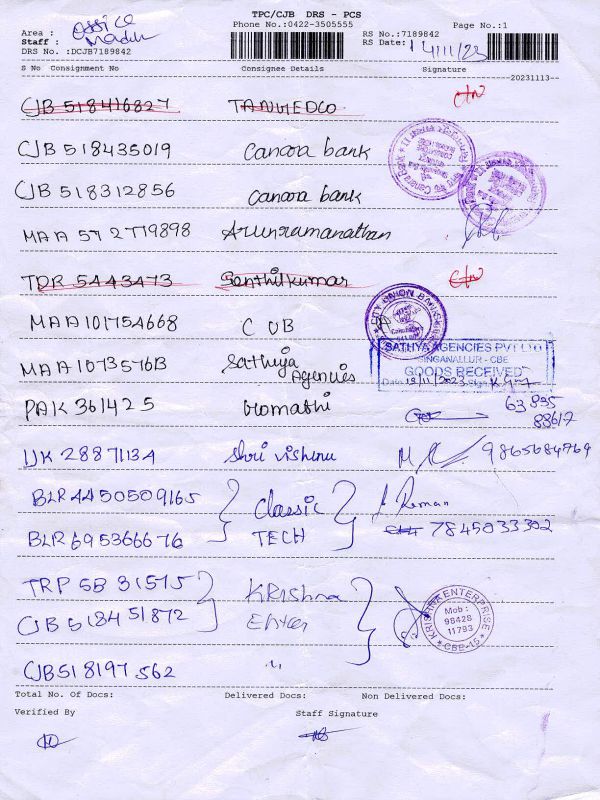 TPC/CJB DRS - PCS
Phone No.:0422-3505555
Page No.:1
Area : office
Staff : Madin
DRS No. :DCJB7189842
RS No.:7189842
RS Date: 14/11/23
S No Consignment No Consignee Details Signature
20231113
CJB 518416827 TANGEDCO
CJB 518435019 Canara bank
CJB 518312856 Canara bank
MAA 572779898 Arunramanathan
TDR 5443473 Senthilkumar
MAA 101754668 CUB
CITY UNION BANK
MAA 1073576B Sathiya Agencies
SATHYA AGENCIES PVT LTD
SINGANALLUR - CBE
GOODS RECEIVED
Date Sign
PAK 361425 Gomathi
IJK 28871134 Shri Vishnu 9865684769
BLR 4450509165 Classic
BLR 695366676 TECH 7845033302
TRP 5B 31515 Krishna
CJB 518451872 Enter
KRISHNA ENTERPRISE
Mob :
98428
11793
CBE-15
CJB518197562 "
Total No. Of Docs: Delivered Docs: Non Delivered Docs:
Verified By Staff Signature